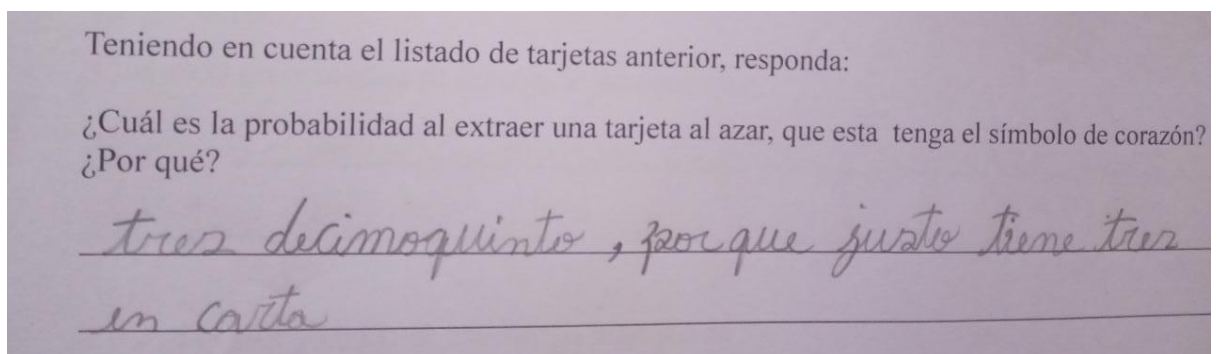 Teniendo en cuenta el listado de tarjetas anterior, responda:
¿Cuál es la probabilidad al extraer una tarjeta al azar, que esta tenga el símbolo de corazón?
¿Por qué?
tres decimoquinto, porque justo tiene tres
en carta